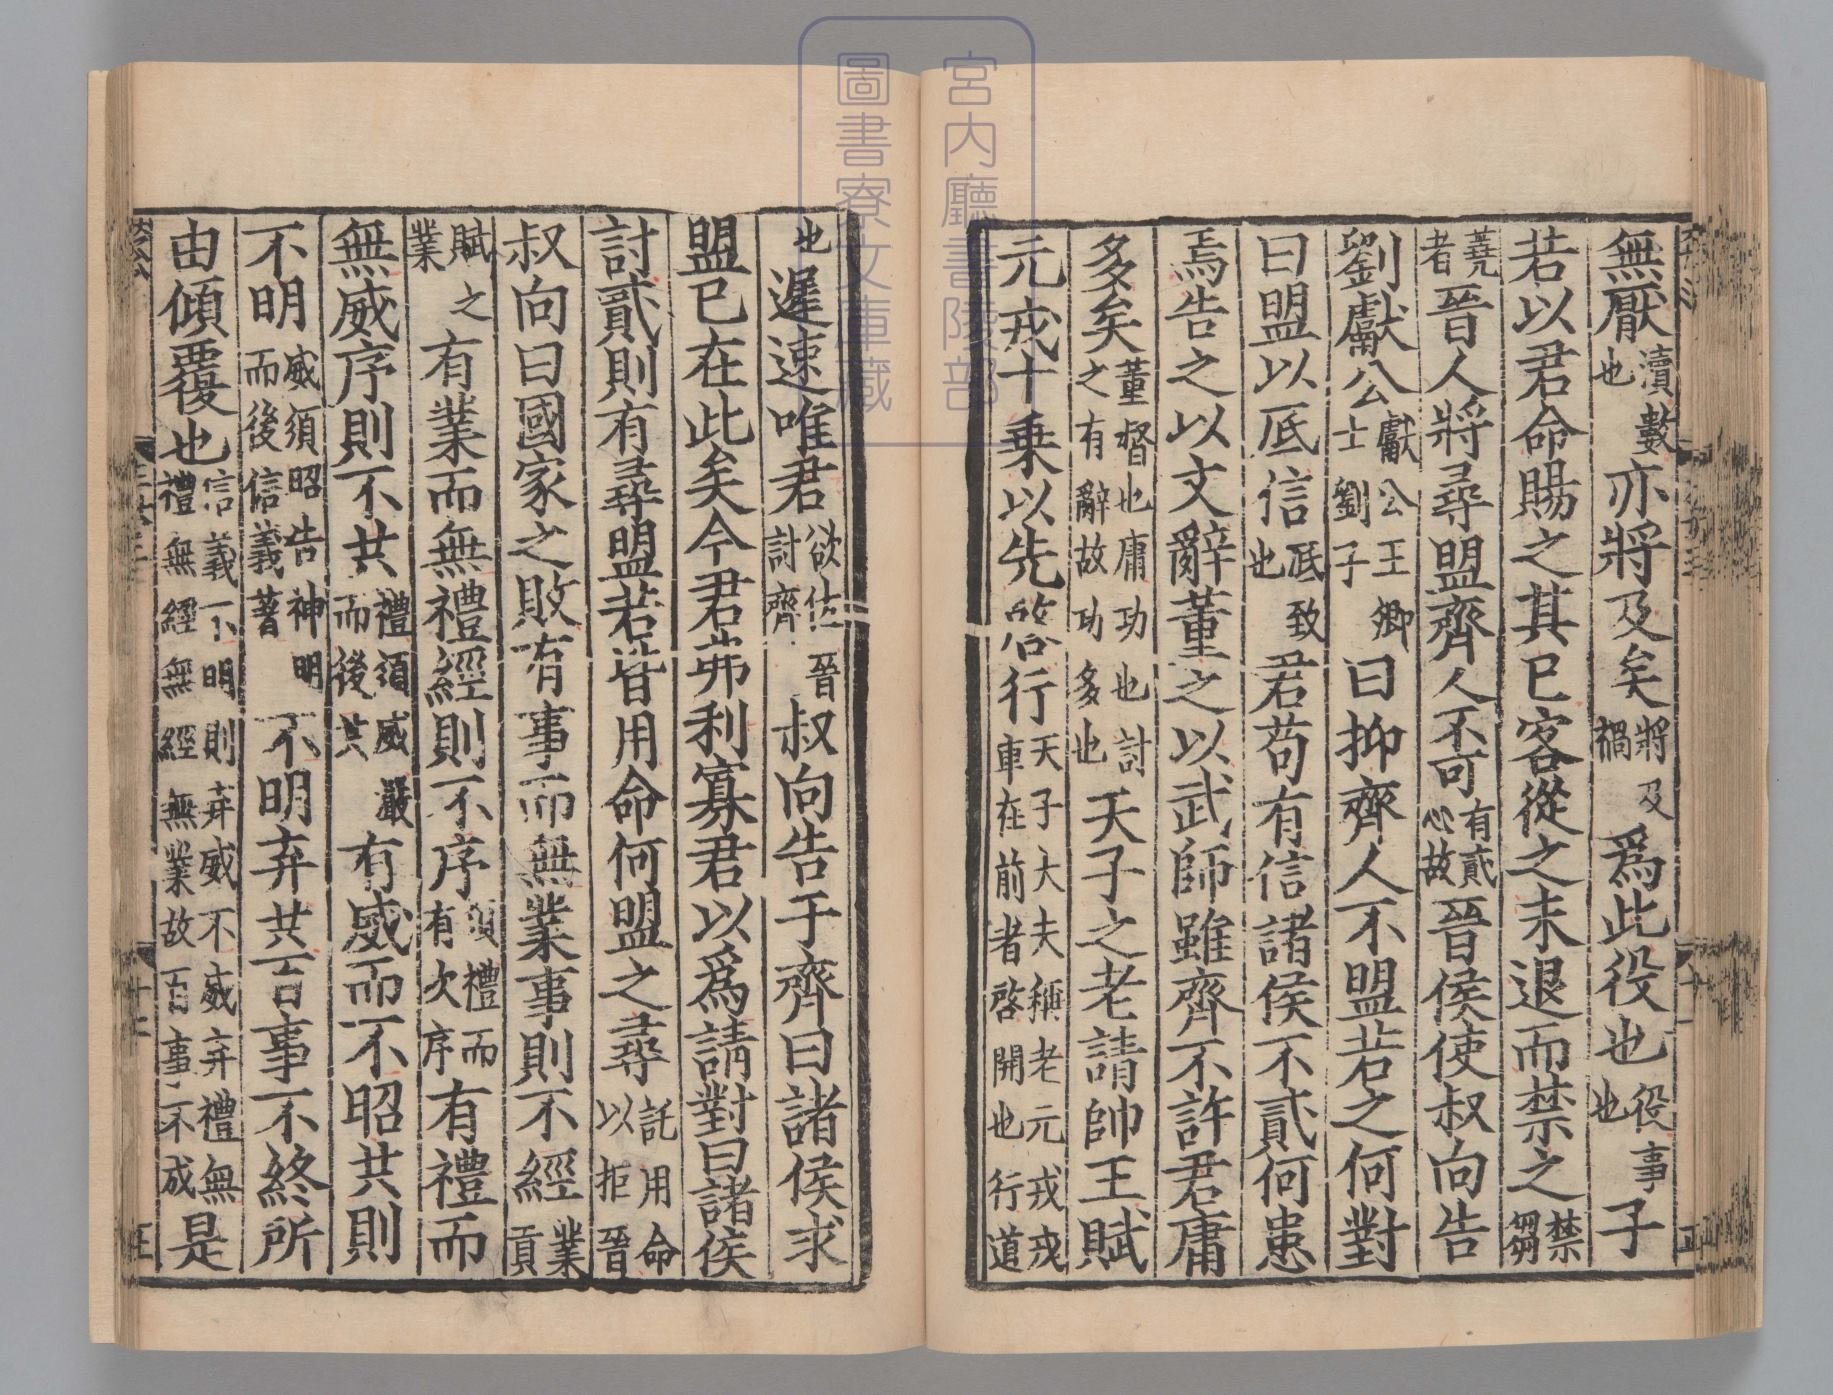 無厭瀆數也亦將及矣將及禍爲此役也役事也子
若以君命賜之其已客從之未退而禁之禁芻
蕘者晉人將尋盟齊人不可有貳心故晉侯使叔向告
劉獻公獻公王卿士劉子曰抑齊人不盟若之何對
曰盟以厎信厎致也君苟有信諸侯不貳何患
焉告之以文辭董之以武師雖齊不許君庸
多矣董督也庸功也討之有辭故功多也天子之老請帥王賦
元戎十乗以先啓行天子大夫稱老元戎戎車在前者啓開也行道
也遲速唯君欲佐晉討齊叔向告于齊曰諸侯求
盟已在此矣今君弗利寡君以爲請對曰諸侯
討貳則有尋盟若皆用命何盟之尋託用命以拒晉
叔向曰國家之敗有事而無業事則不經業貢
賦之業有業而無禮經則不序須禮而有次序有禮而
無威序則不共禮須威嚴而後共有威而不昭共則
不明威須昭告神明而後信義著不明弃共百事不終所
由傾覆也信義不明則弃威不威弃禮無禮無經無經無業故百事不成是
宮内廳書陵部
圖書寮文庫藏